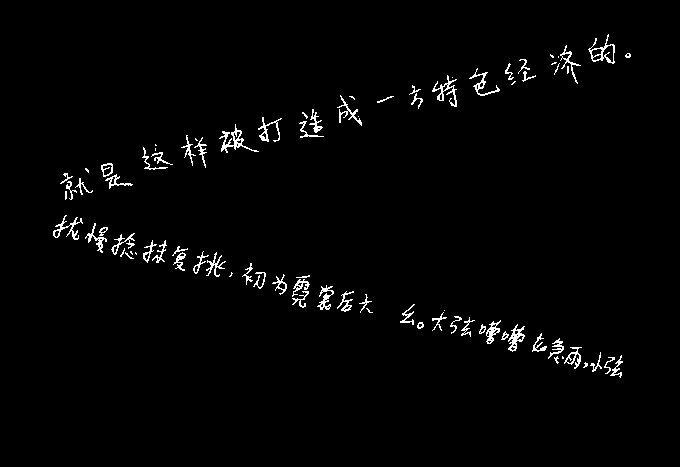 就是这样被打造成一方特色经济的。
拢慢捻抹复挑，初为霓裳后六 幺。大弦嘈嘈如急雨，小弦